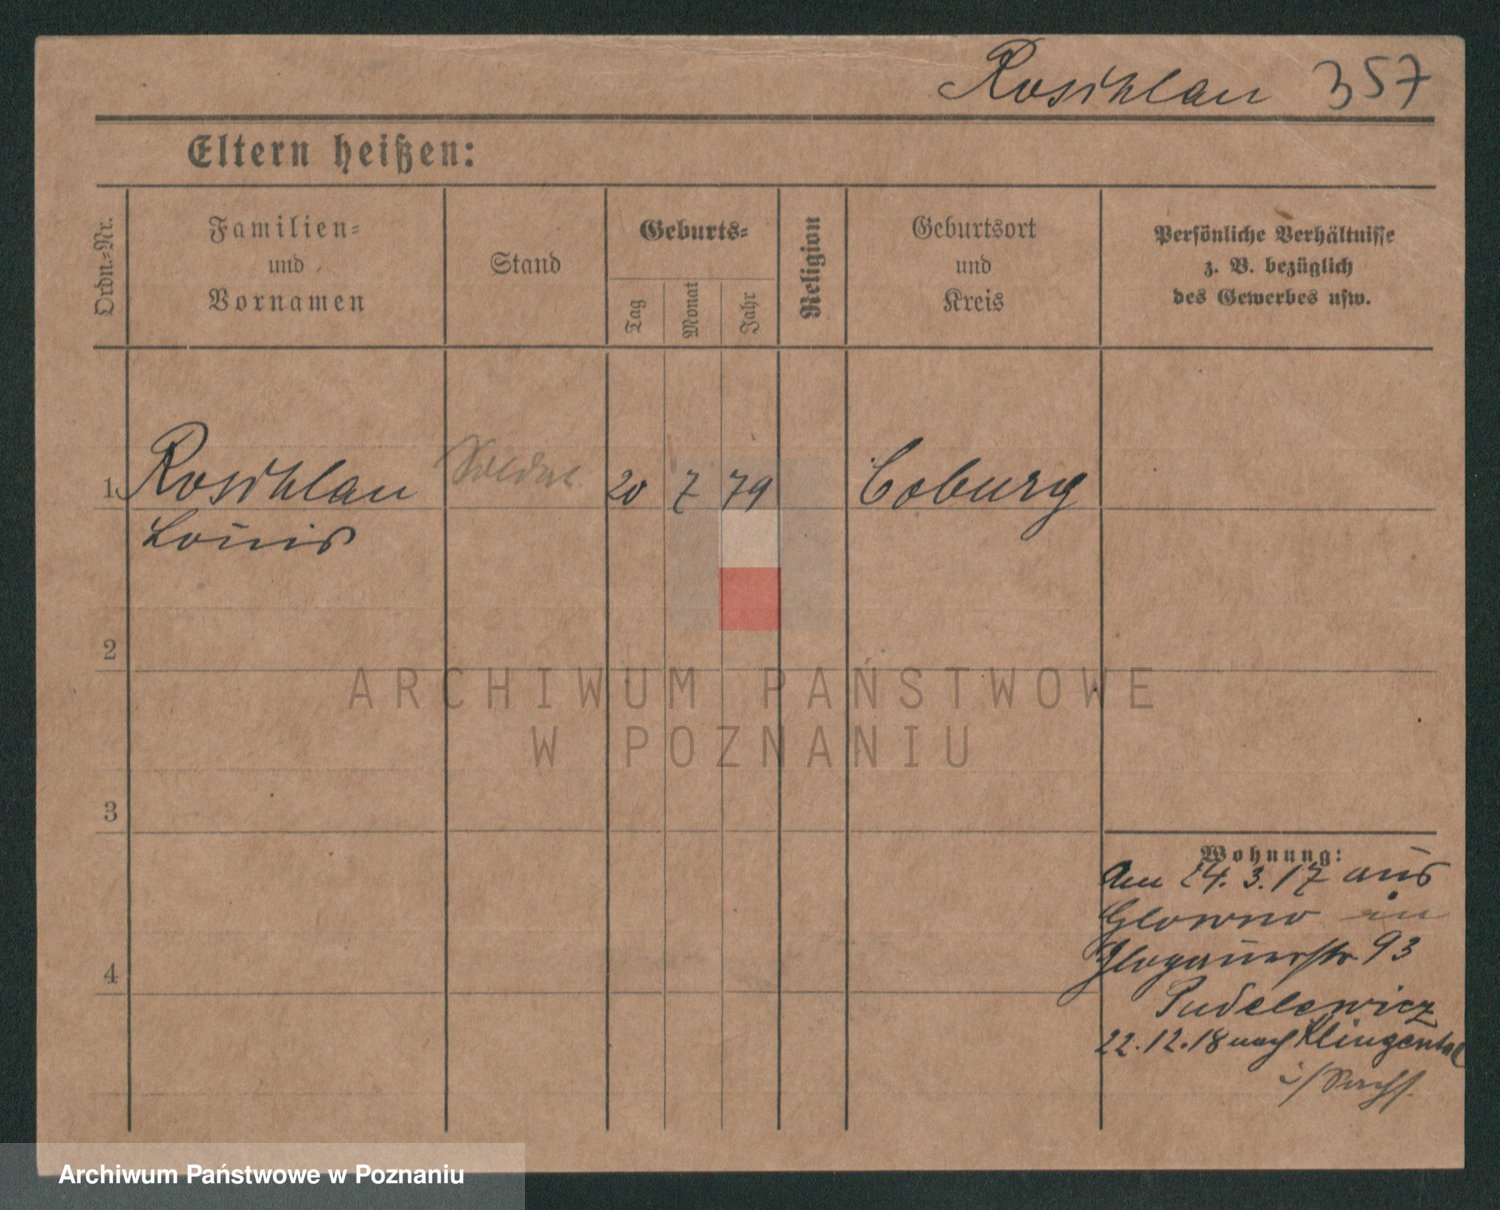 Roschlau 357
Eltern heißen:
Ordn.-Nr.
Familien-
und
Vornamen
Stand
Geburts-
Tag
Monat
Jahr
Religion
Geburtsort
und
Kreis
Persönliche Verhältnisse
z. B. bezüglich
des Gewerbes usw.
1 Roschlau Soldat 20 7 79 Coburg
Louis
2
3
4
Wohnung:
Am 24.3.17 aus
Glowno in
Glogauerstr. 93
Pudelewicz
22.12.18 nach Klingental
i/Sachs.
ARCHIWUM PAŃSTWOWE
W POZNANIU
Archiwum Państwowe w Poznaniu